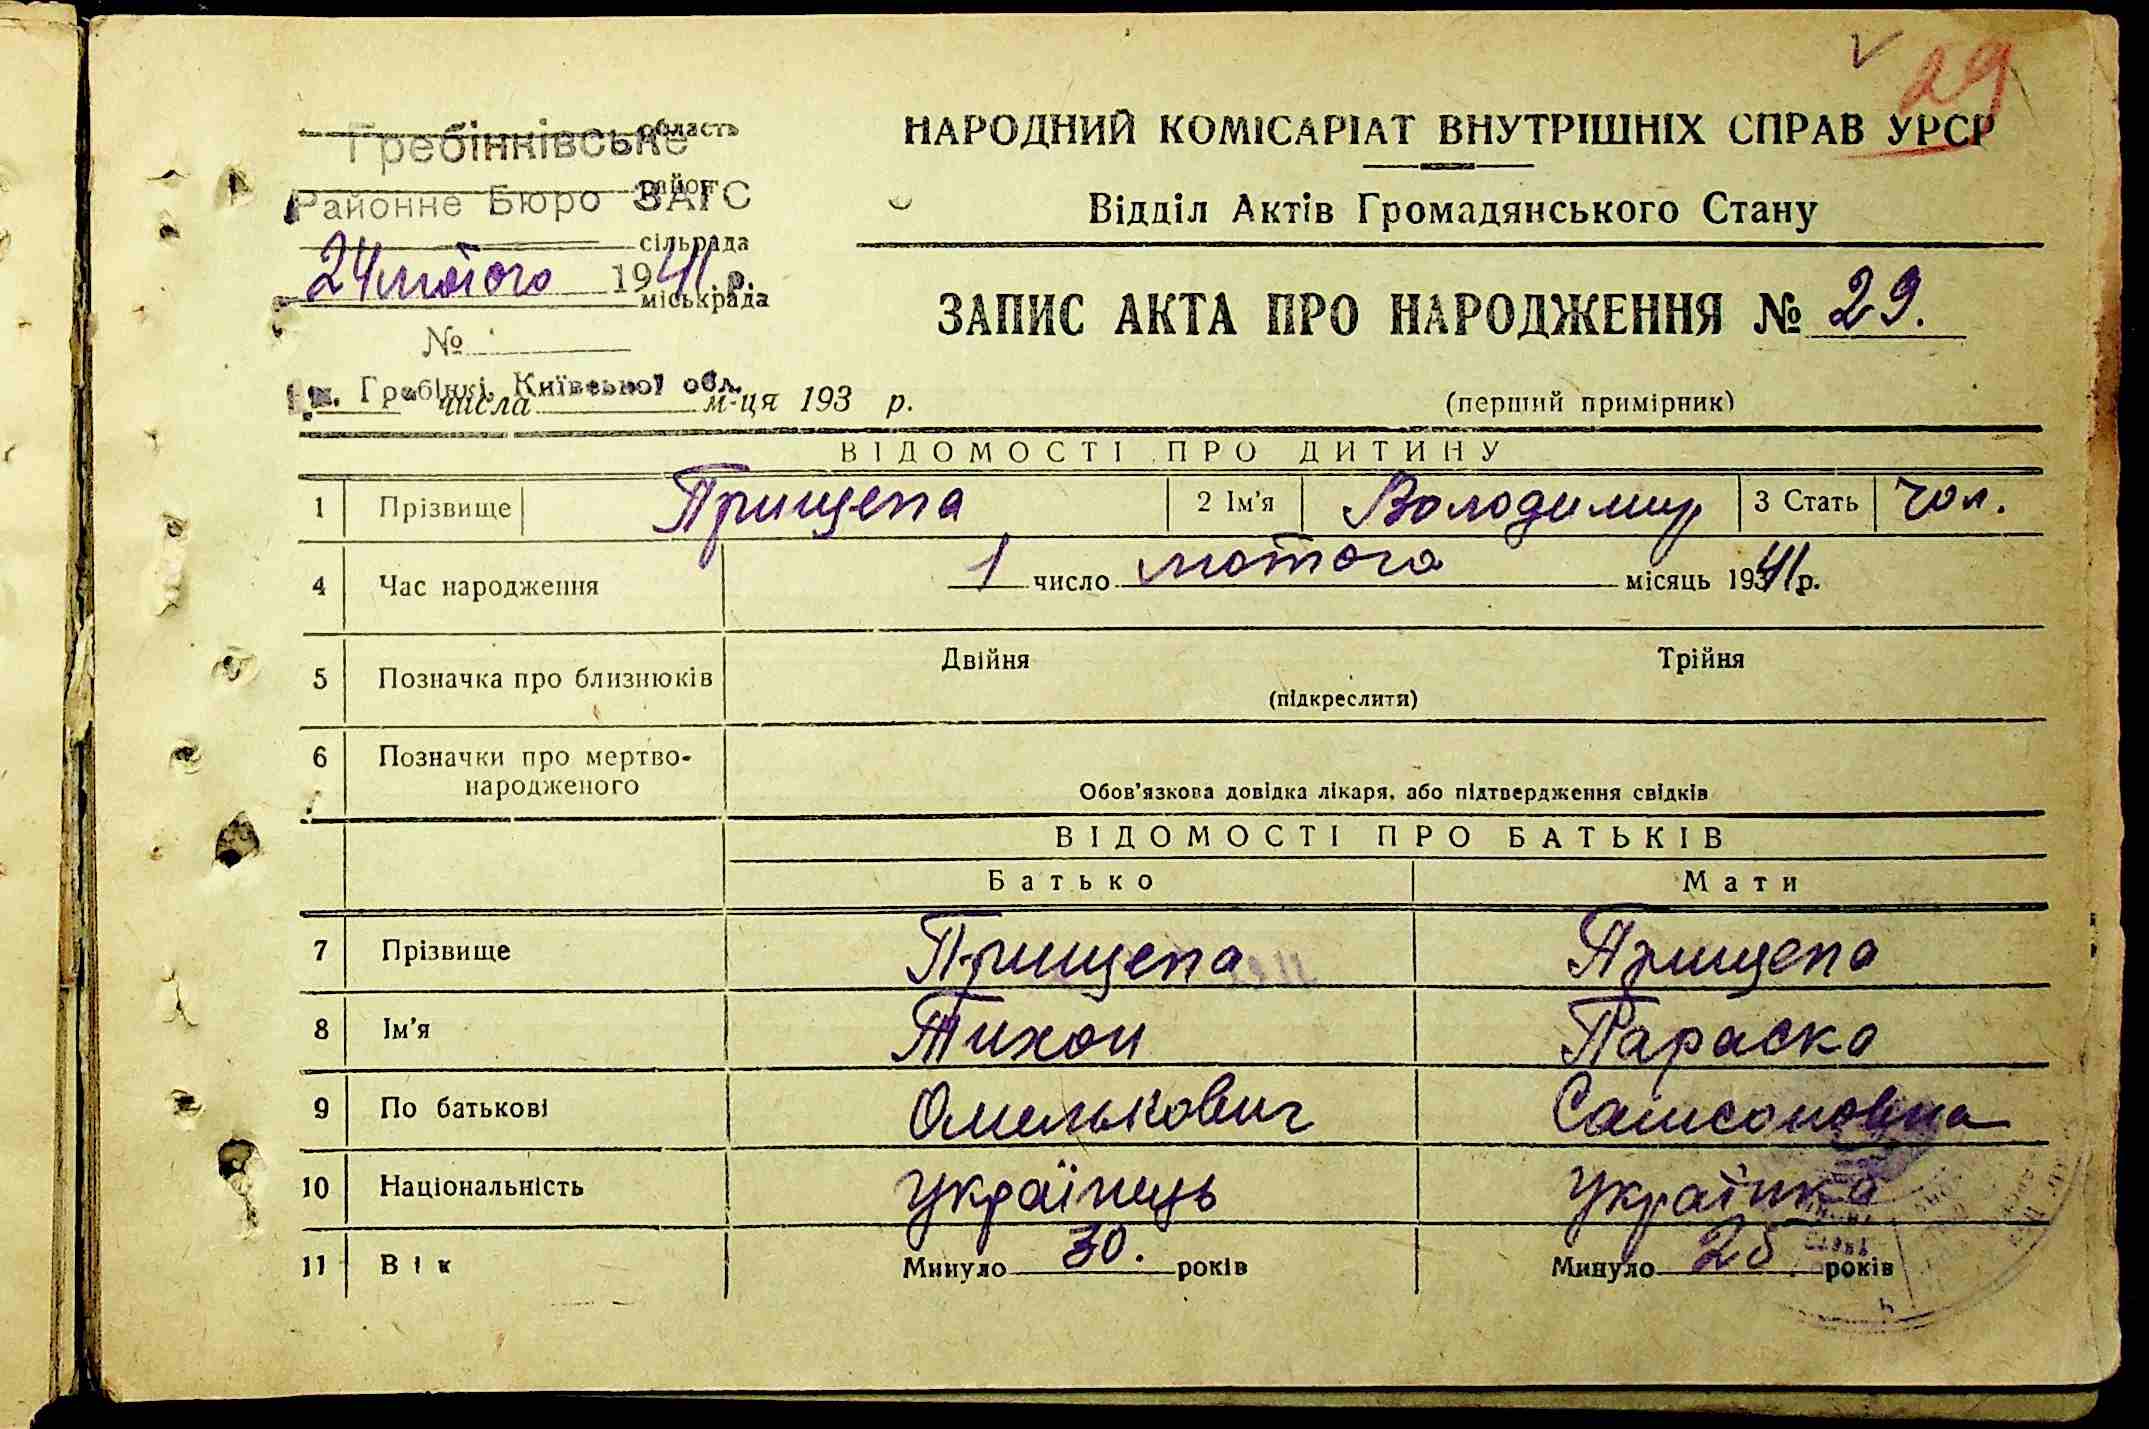 29
область
Гребінківське
район
Районне Бюро ЗАГС
сільрада
24 лютого 1941 р.
міськрада
№
Гребінкі, Київської обл.
числа м-ця 193 р.
НАРОДНИЙ КОМІСАРІАТ ВНУТРІШНІХ СПРАВ УРСР
Відділ Актів Громадянського Стану
ЗАПИС АКТА ПРО НАРОДЖЕННЯ № 29.
(перший примірник)
ВІДОМОСТІ ПРО ДИТИНУ
1 Прізвище Прищепа 2 Ім'я Володимир 3 Стать чол.
4 Час народження 1 число лютого місяць 1941 р.
5 Позначка про близнюків Двійня Трійня
(підкреслити)
6 Позначки про мертво-
народженого
Обов'язкова довідка лікаря, або підтвердження свідків
ВІДОМОСТІ ПРО БАТЬКІВ
Батько Мати
7 Прізвище Прищепа Прищепа
8 Ім'я Тихон Параска
9 По батькові Омелькович Самсоновна
10 Національність Українець Українка
11 Вік Минуло 30. років Минуло 25 років